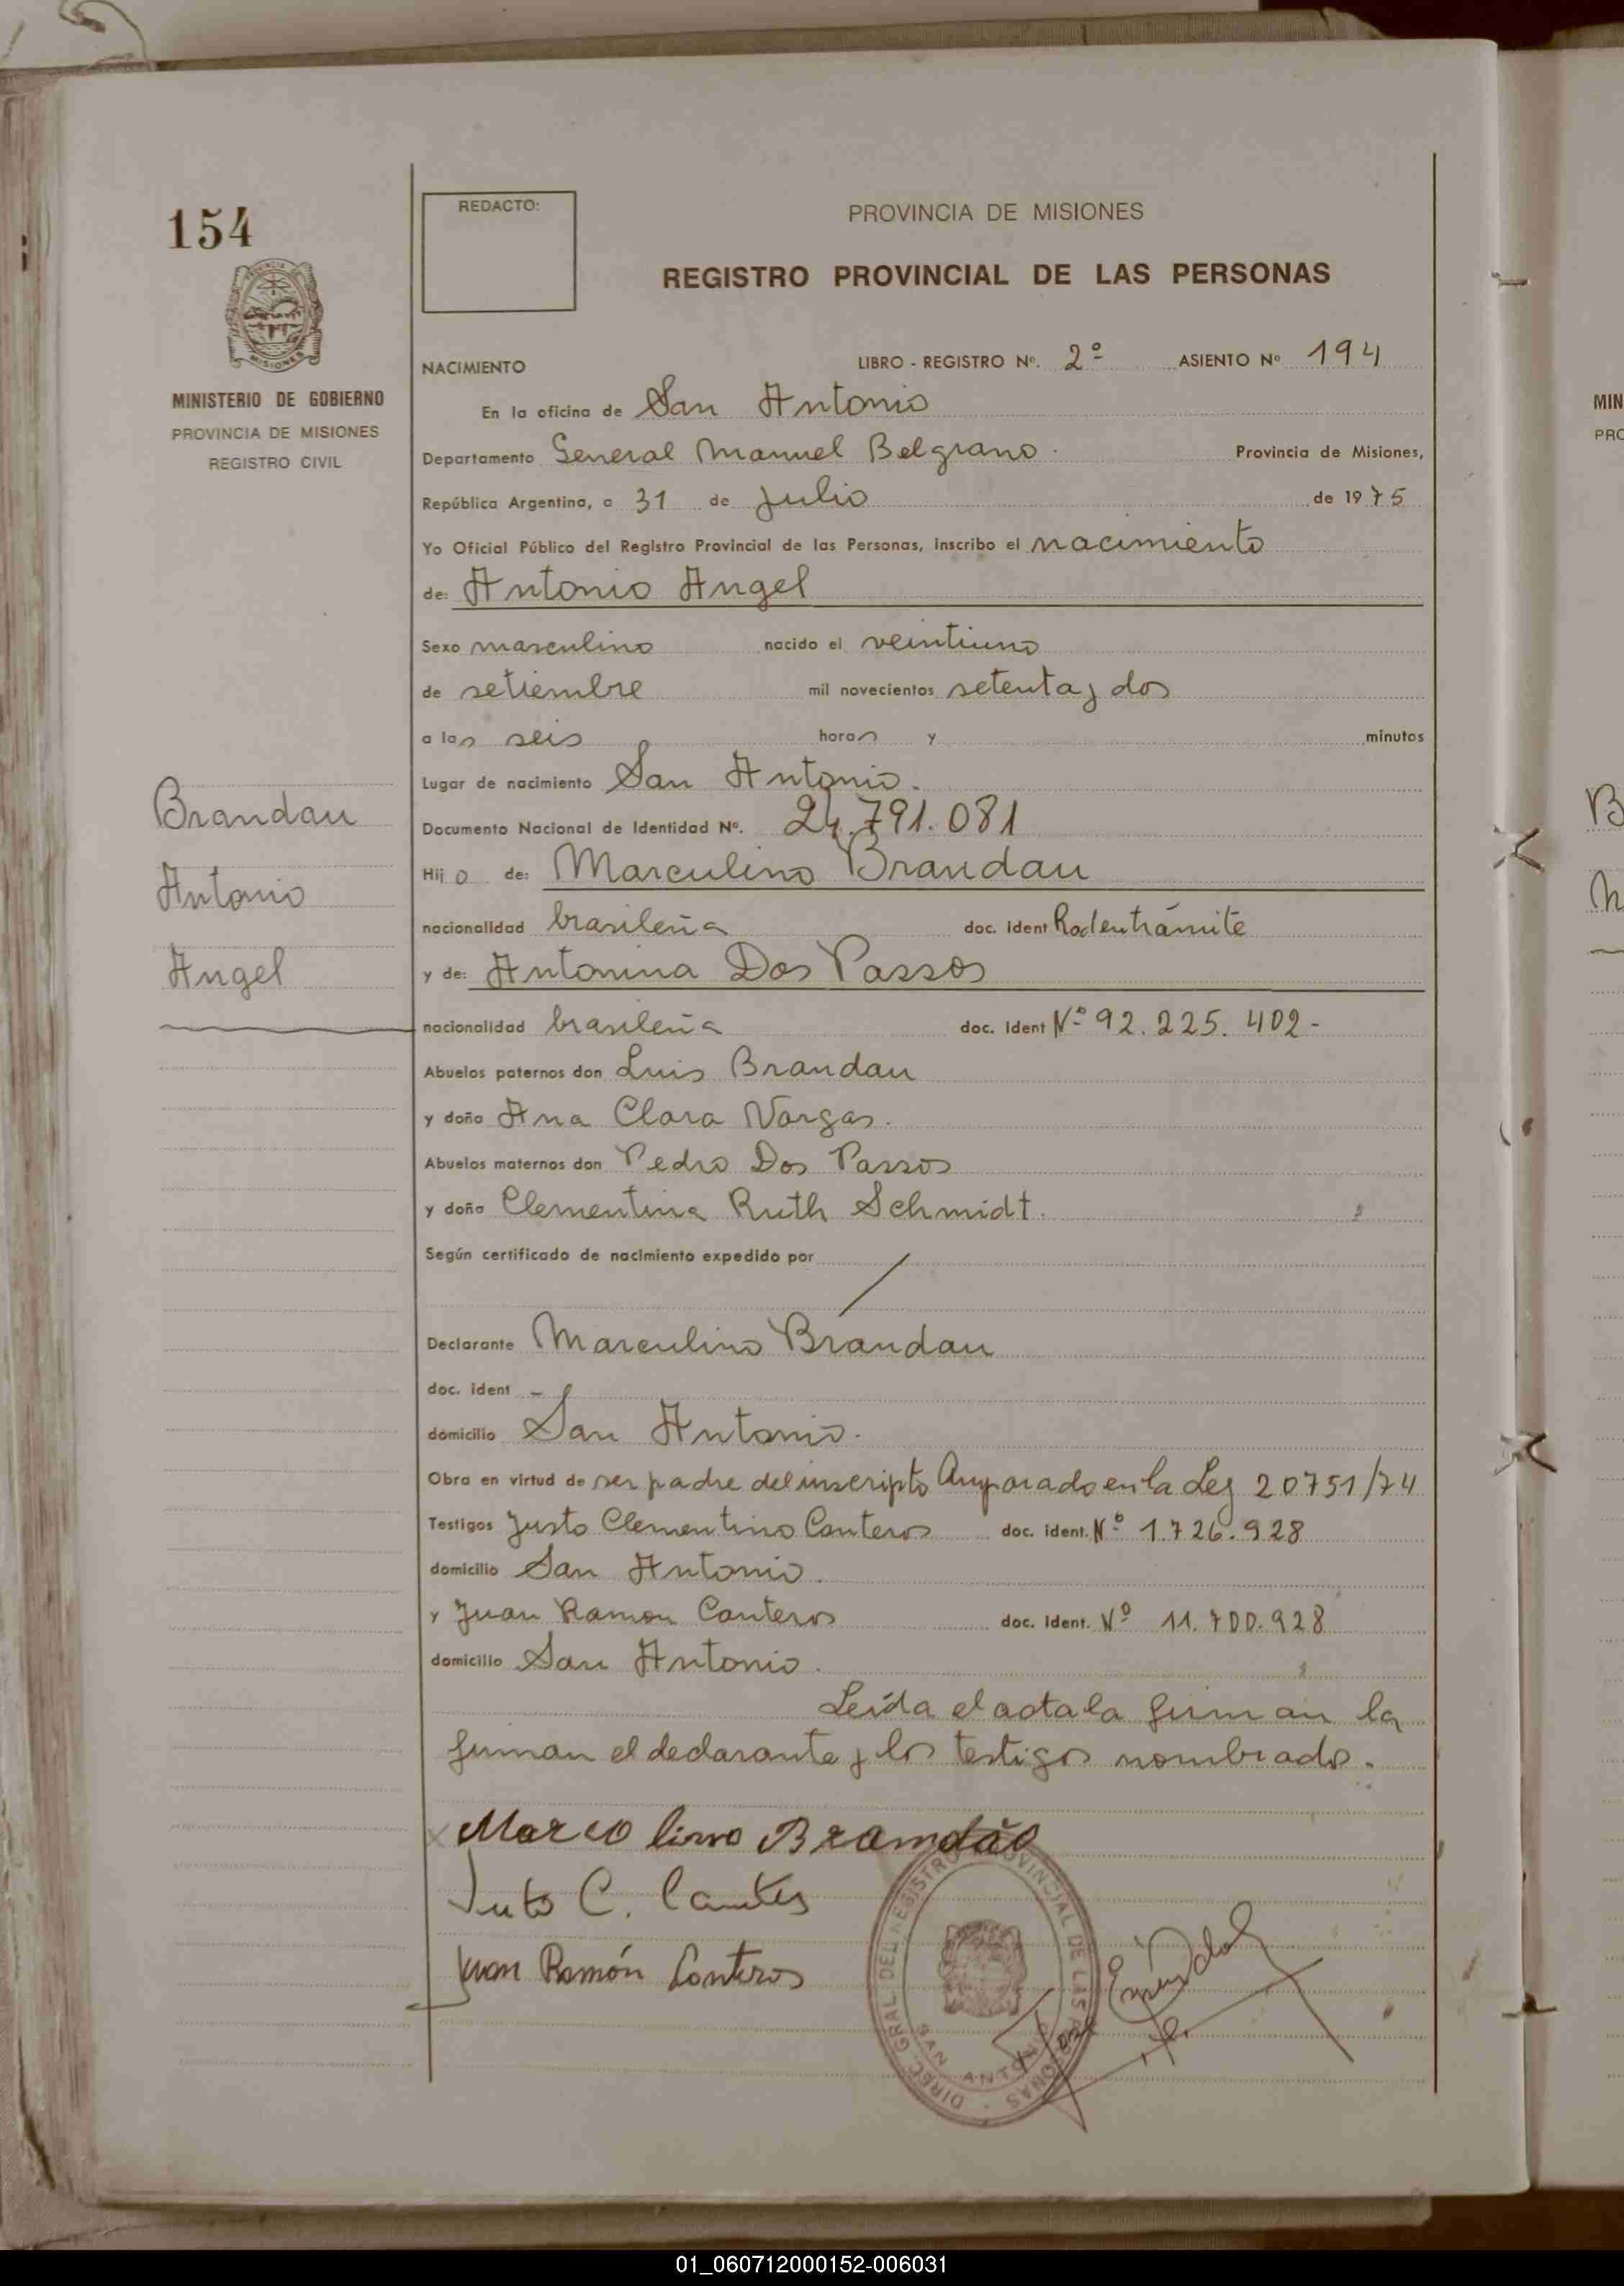 154
REDACTO:
PROVINCIA DE MISIONES
REGISTRO PROVINCIAL DE LAS PERSONAS
MINISTERIO DE GOBIERNO
PROVINCIA DE MISIONES
REGISTRO CIVIL
NACIMIENTO LIBRO - REGISTRO Nº. 2º ASIENTO Nº 194
En la oficina de San Antonio
Departamento General Manuel Belgrano. Provincia de Misiones,
República Argentina, a 31 de Julio de 1975
Yo Oficial Público del Registro Provincial de las Personas, inscribo el nacimiento
de: Antonio Angel
Sexo masculino nacido el veintiuno
de setiembre mil novecientos setenta y dos
a las seis horas y minutos
Lugar de nacimiento San Antonio.
Brandau
Antonio
Angel
Documento Nacional de Identidad Nº. 24.791.081
Hijo de: Marculino Brandau
nacionalidad brasileña doc. ident Rad en trámite
y de: Antonina Dos Passos
nacionalidad brasileña doc. ident Nº 92.225.402-
Abuelos paternos don Luis Brandau
y doña Ana Clara Vargas.
Abuelos maternos don Pedro Dos Passos
y doña Clementina Ruth Schmidt.
Según certificado de nacimiento expedido por
Declarante Marculino Brandau
doc. ident -
domicilio San Antonio.
Obra en virtud de ser padre del inscripto Amparado en la Ley 20751/74
Testigos Justo Clementino Canteros doc. ident. Nº 1.726.928
domicilio San Antonio.
y Juan Ramon Canteros doc. ident. Nº 11.700.928
domicilio San Antonio.
Leída el acta la firman la
firman el declarante y los testigos nombrado.
Marco lino Bramdão
Justo C. Cantes
Juan Ramón Canteros
DIREC. GRAL. DEL REGISTRO PROVINCIAL DE LAS PERSONAS
SAN ANTONIO
MIN
PRO
B
01_060712000152-006031